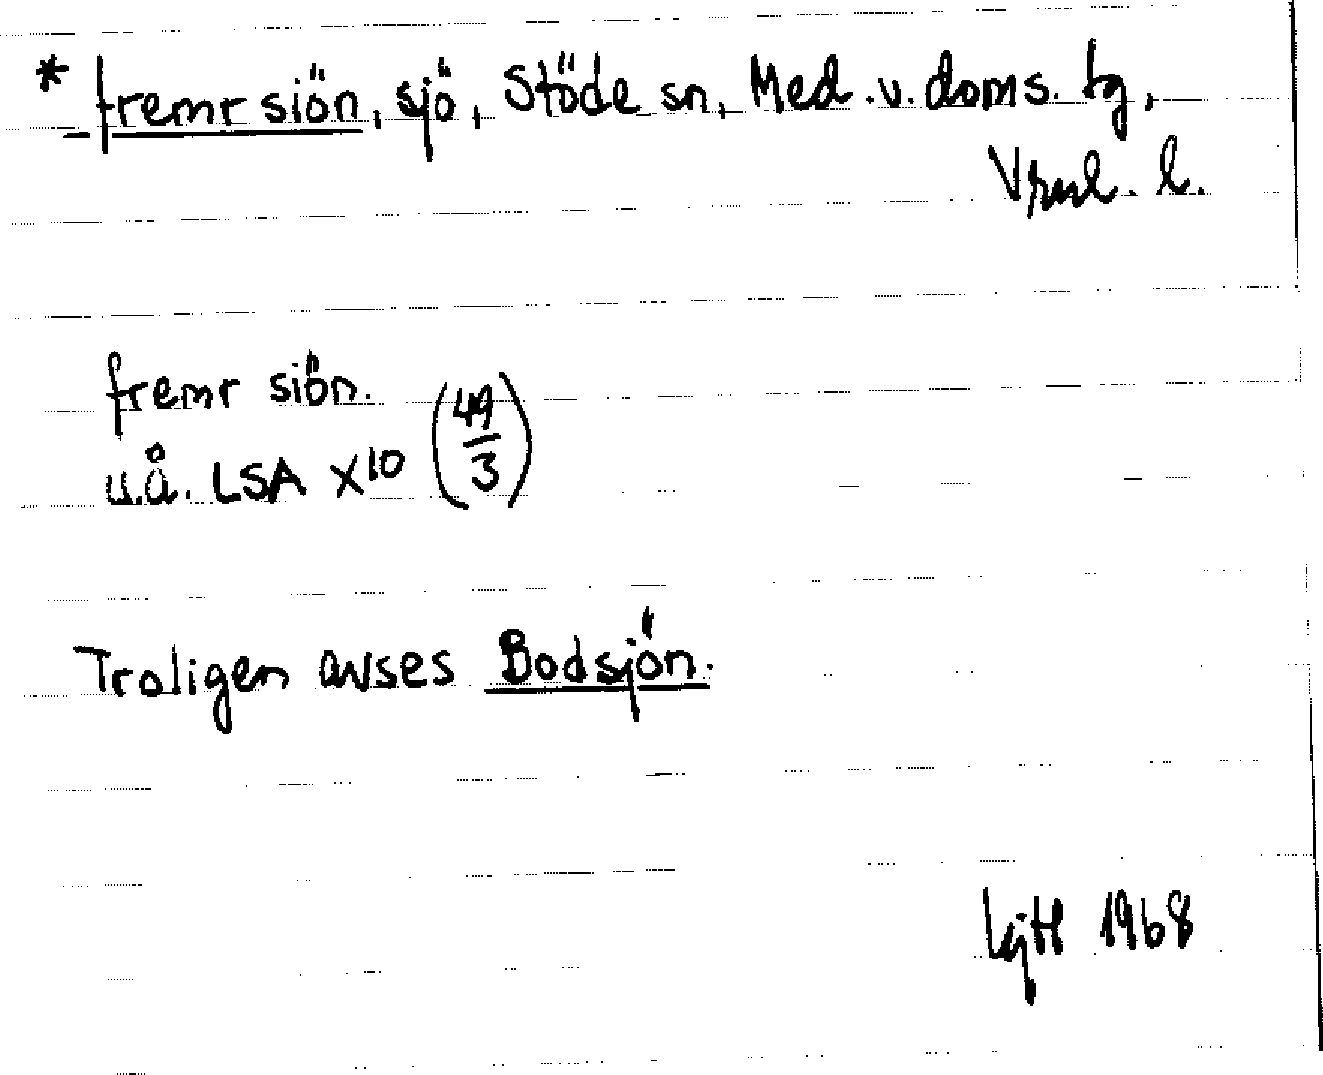 * fremr siön, sjö, Stöde sn, Med. v. doms. tg,
Vrnl. l.
fremr siön.
u.å. LSA X10 (49/3)
Troligen avses Bodsjön.
1968